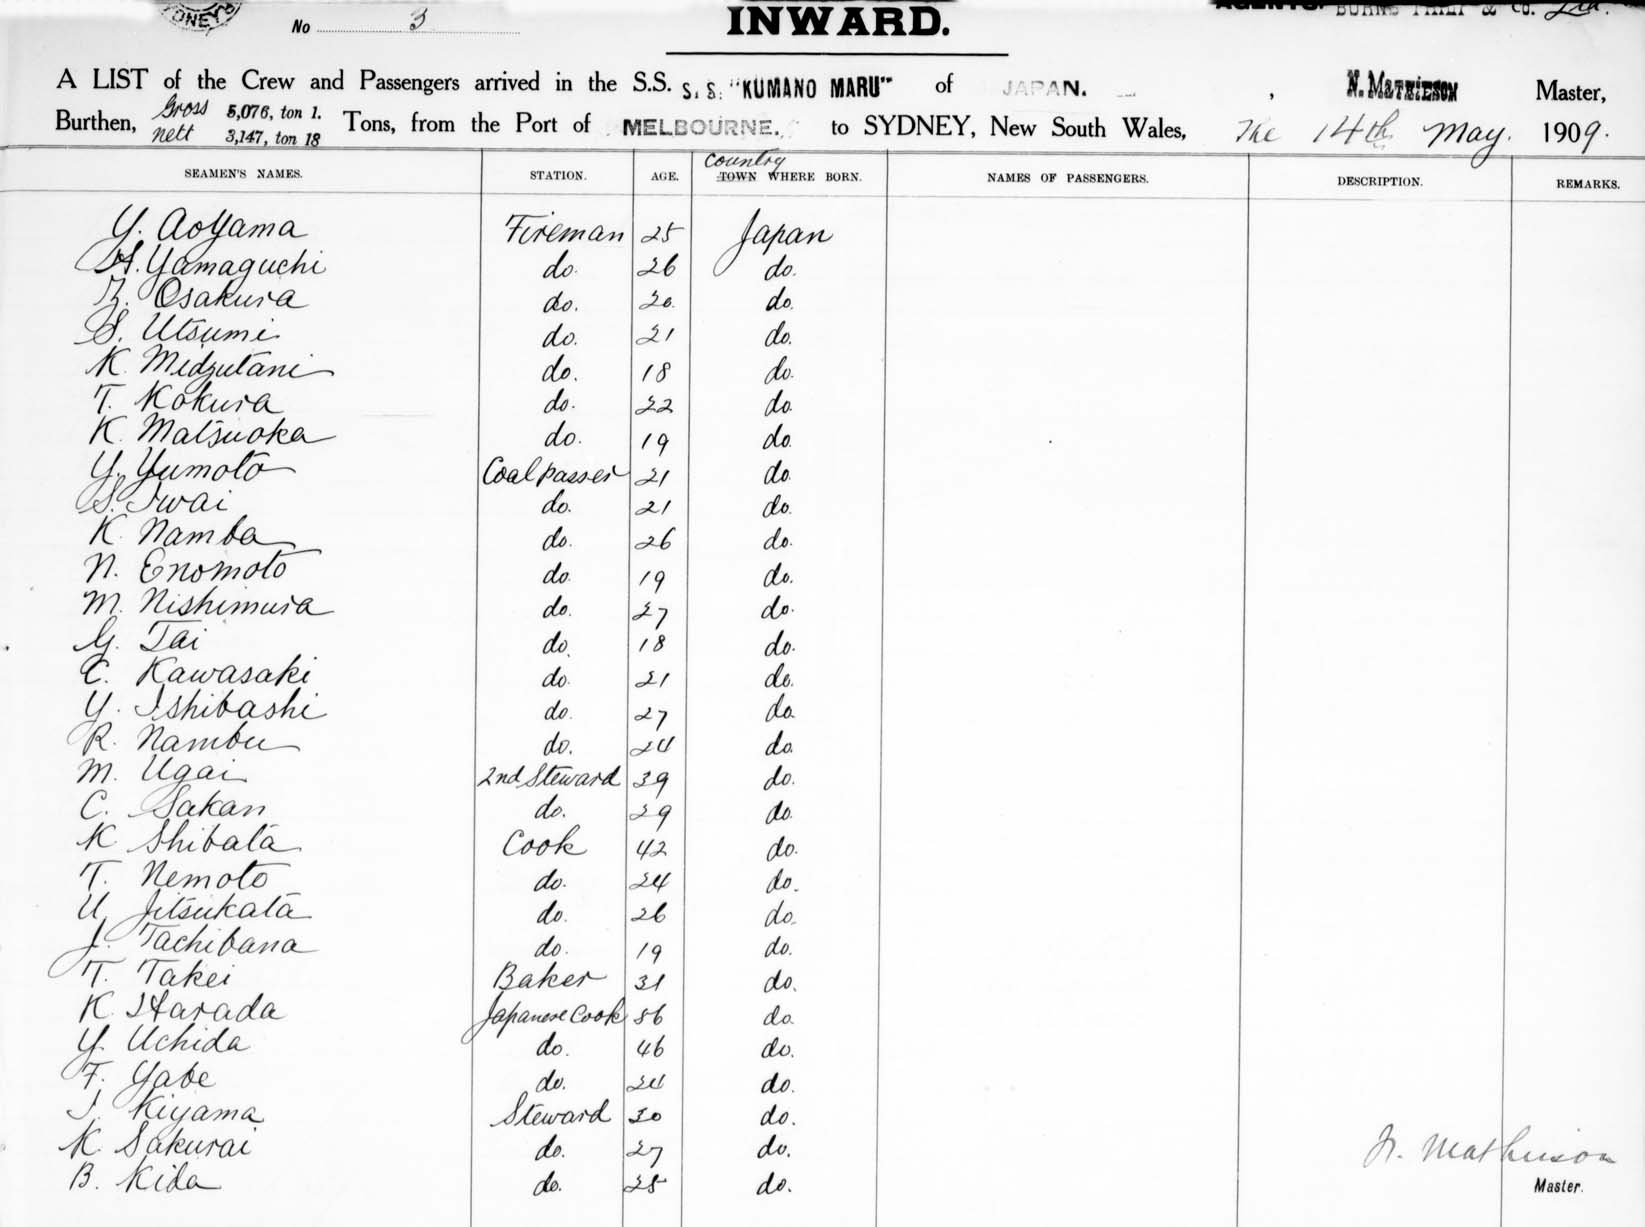 No 3
INWARD.
AGENTS. BURNS PHILP & Co. Ltd.
A LIST of the Crew and Passengers arrived in the S.S. S.S. "KUMANO MARU" of JAPAN. , N. MATHIESON Master,
Burthen, Gross 5,076, ton 1. nett 3,147, ton 18 Tons, from the Port of MELBOURNE. to SYDNEY, New South Wales, The 14th May. 1909.
SEAMEN'S NAMES. STATION. AGE. Country TOWN WHERE BORN. NAMES OF PASSENGERS. DESCRIPTION. REMARKS.
Y. Aoyama Fireman 25 Japan
H. Yamaguchi do. 26 do.
Z. Osakura do. 20. do.
S. Utsumi do. 21 do.
K. Midzutani do. 18 do.
T. Kokura do. 22 do.
K. Matsuoka do. 19 do.
Y. Yumoto Coal passer 21 do.
S. Iwai do. 21 do.
K. Namba do. 26 do.
N. Enomoto do. 19 do.
M. Nishimura do. 27 do.
G. Tai do. 18 do.
C. Kawasaki do. 21 do.
Y. Ishibashi do. 27 do.
R. Nambu do. 24 do.
M. Ugai 2nd Steward 39 do.
C. Sakan do. 29 do.
K Shibata Cook 42 do.
T. Nemoto do. 24 do.
U. Jitsukata do. 26 do.
J. Tachibana do. 19 do.
T. Takei Baker 31 do.
K. Harada Japanese Cook 56 do.
Y. Uchida do. 46 do.
F. Yabe do. 24 do.
J. Kiyama Steward 30 do.
K. Sakurai do. 27 do.
B. Kida do. 25 do.
N. Mathieson
Master.